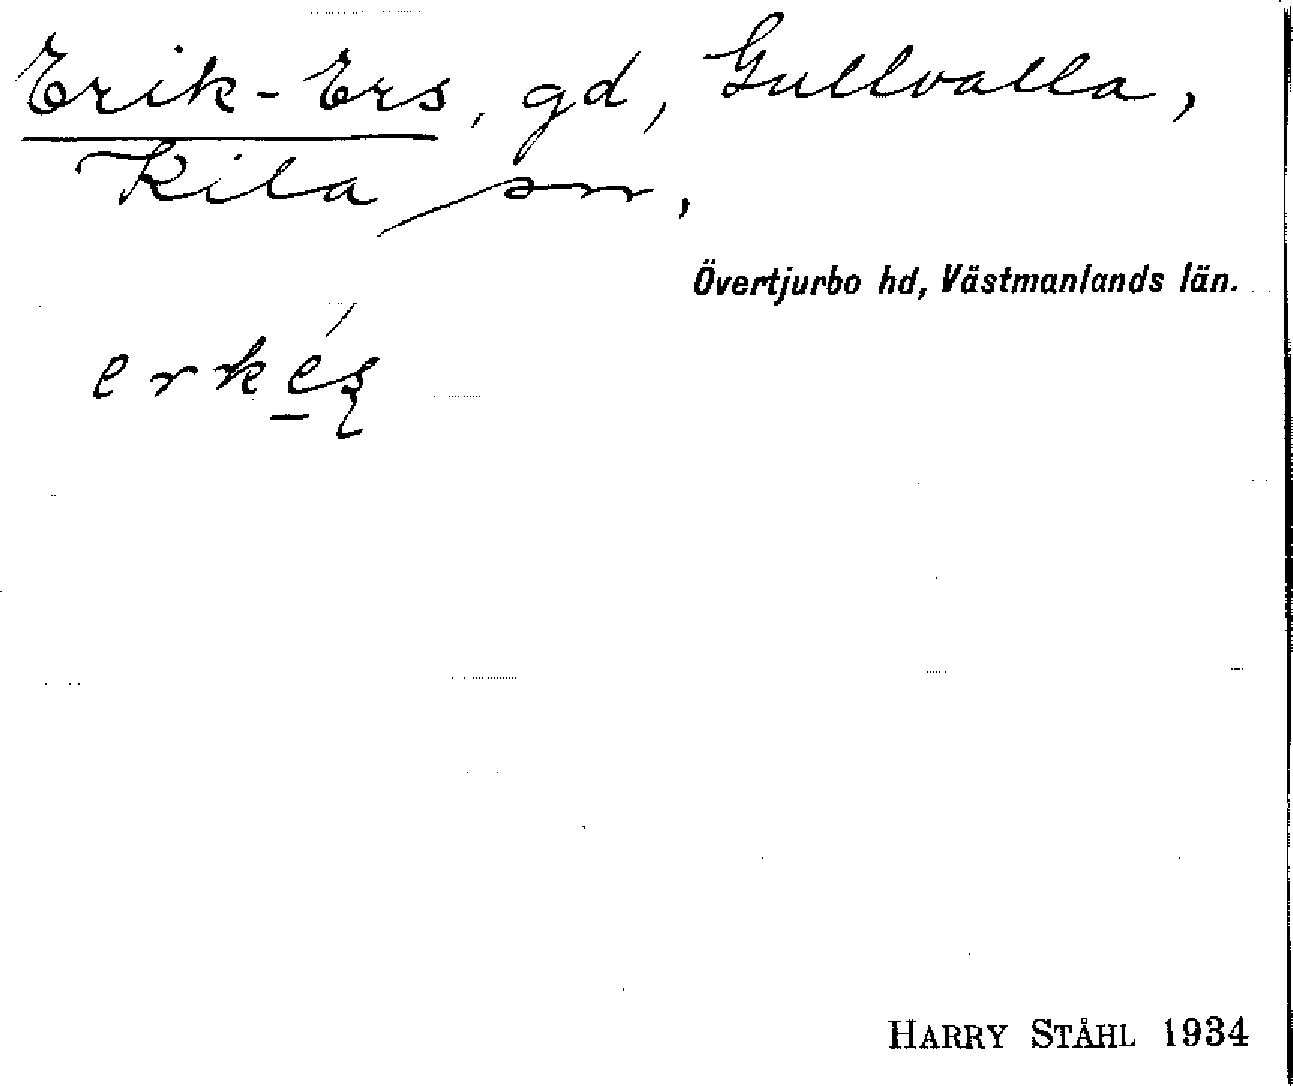 Erik-Ers, gd, Gullvalla,
Kila sn,
Övertjurbo hd, Västmanlands län.
erkés̨
HARRY STÅHL 1934